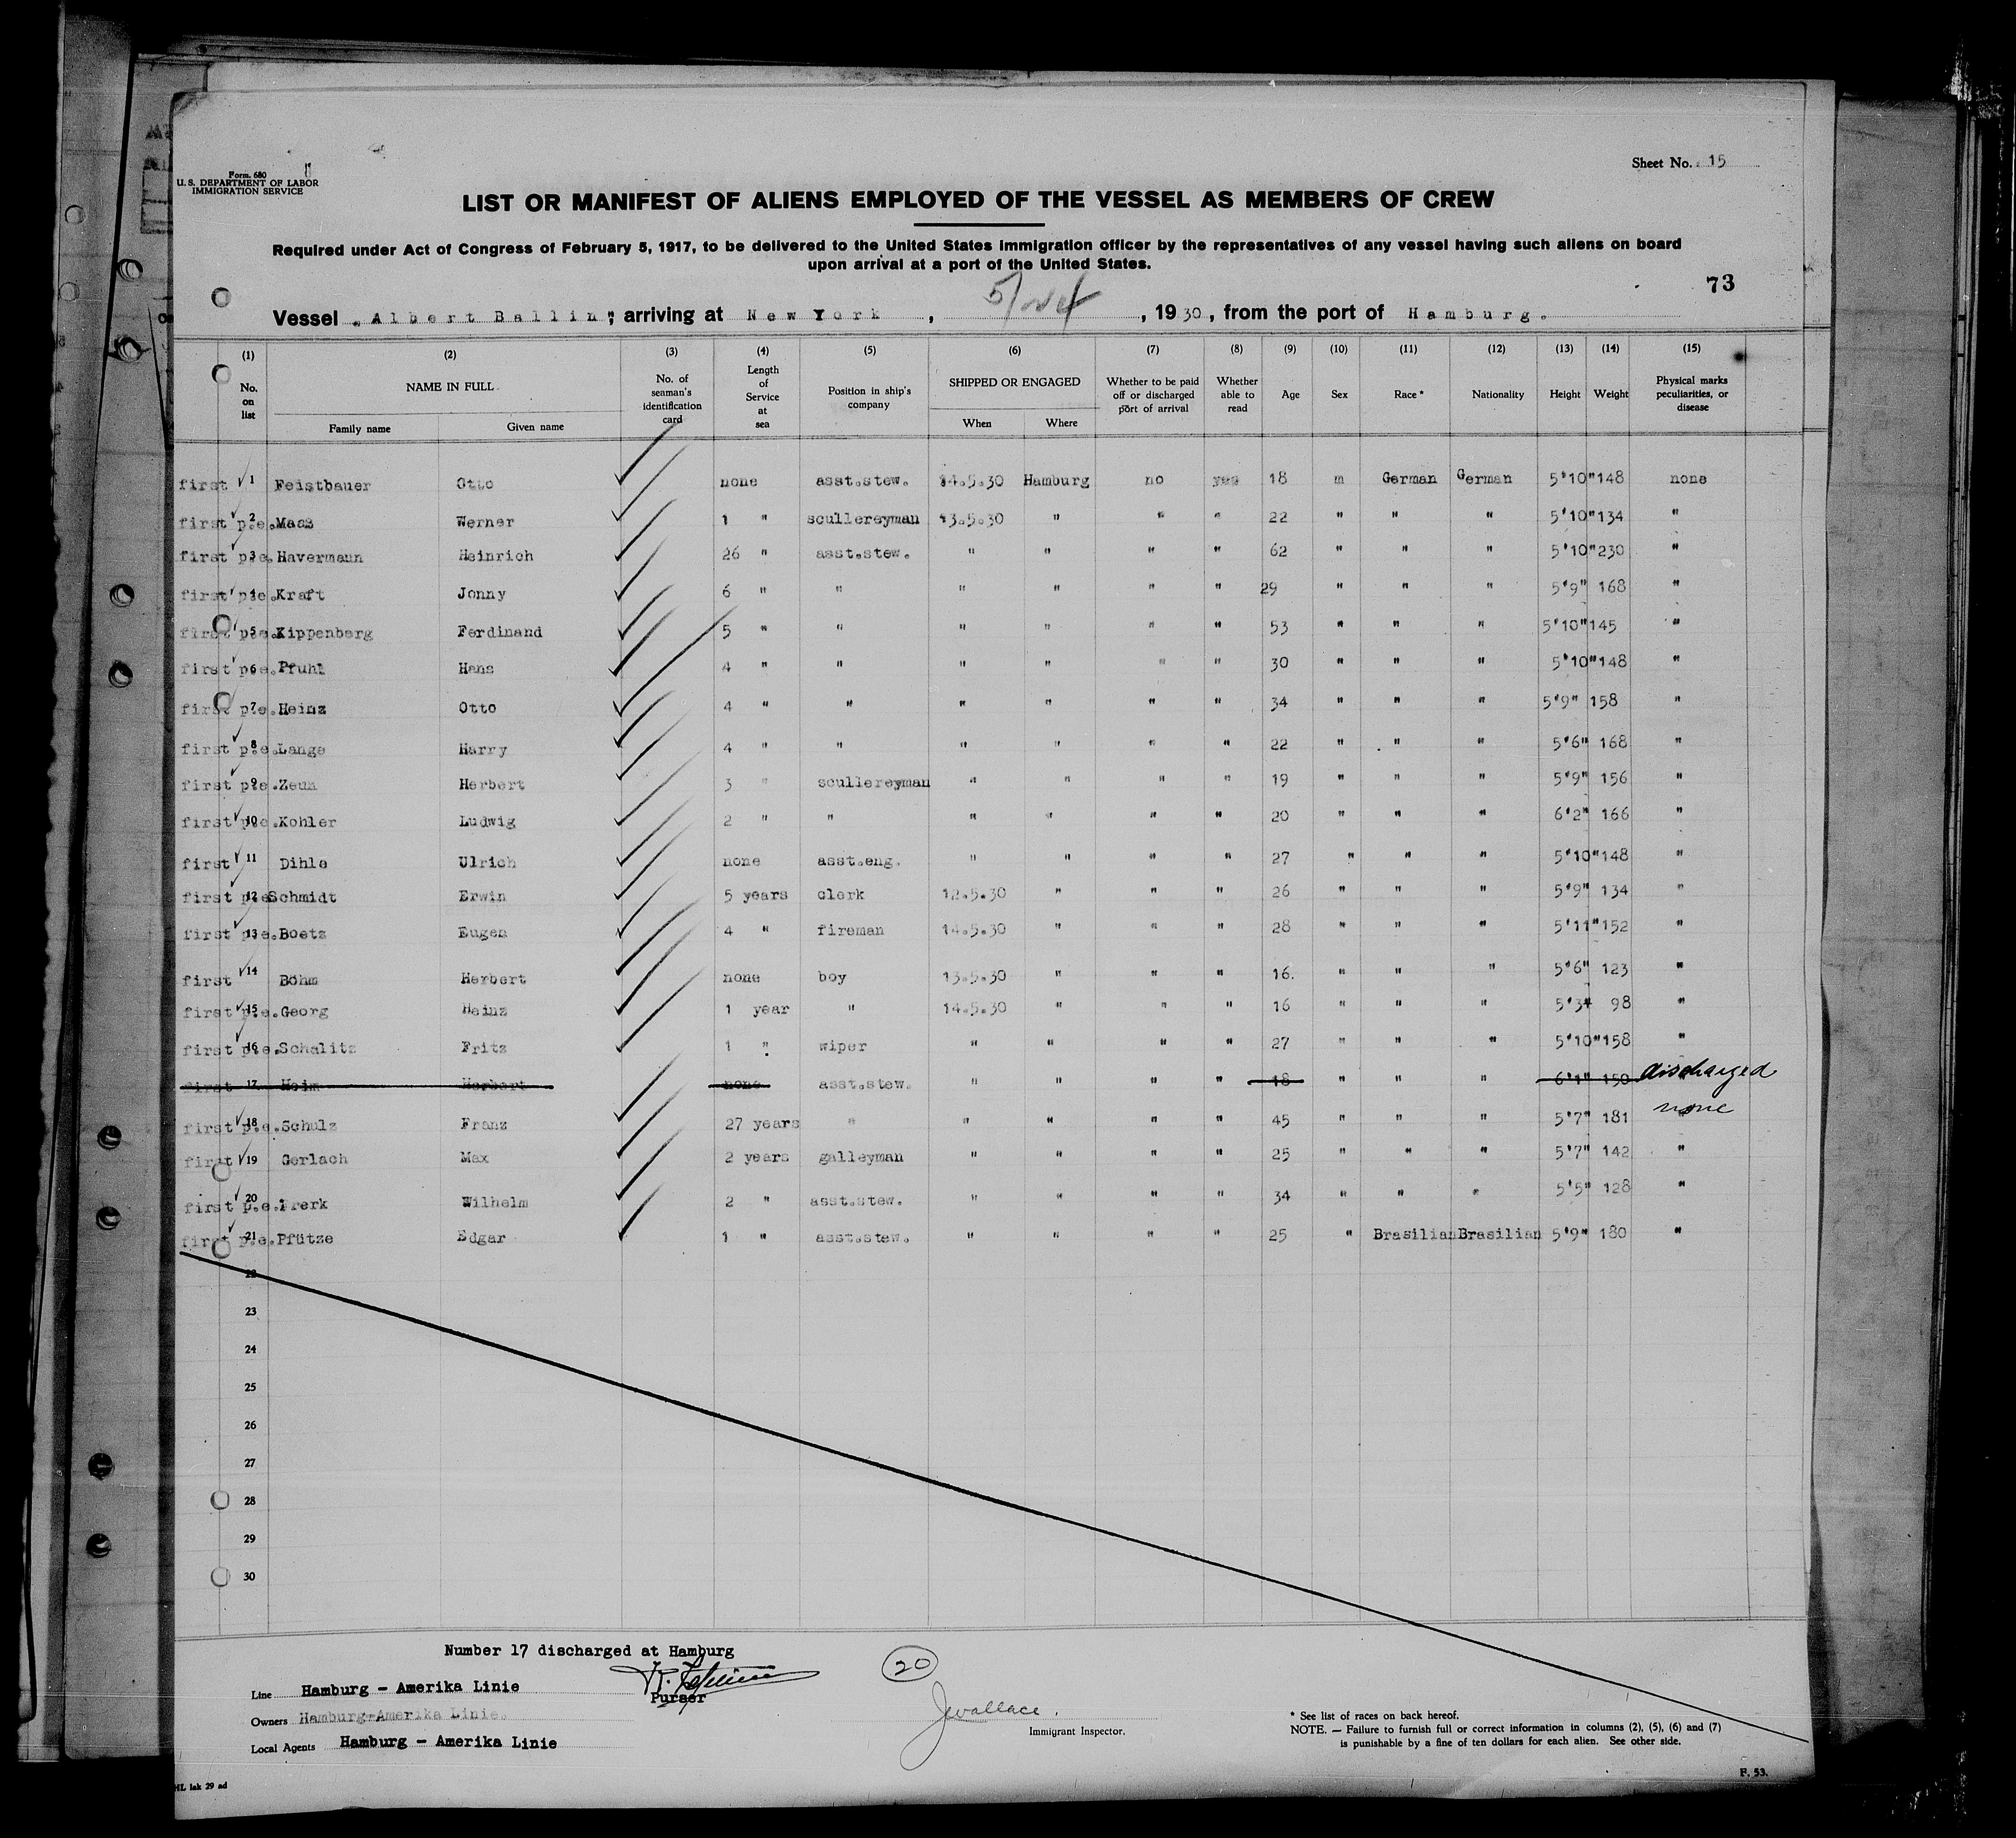 Form. 680
U. S. DEPARTMENT OF LABOR
IMMIGRATION SERVICE
Sheet No. 15
LIST OR MANIFEST OF ALIENS EMPLOYED OF THE VESSEL AS MEMBERS OF CREW
Required under Act of Congress of February 5, 1917, to be delivered to the United States immigration officer by the representatives of any vessel having such aliens on board
upon arrival at a port of the United States.
73
Vessel „Albert Ballin", arriving at New York, , 1930, from the port of Hamburg.
(1) (2) (3) (4) (5) (6) (7) (8) (9) (10) (11) (12) (13) (14) (15)
No. on list NAME IN FULL Family name Given name No. of seaman's identification card Length of Service at sea Position in ship's company SHIPPED OR ENGAGED When Where Whether to be paid off or discharged port of arrival Whether able to read Age Sex Race * Nationality Height Weight Physical marks peculiarities, or disease
first 1 Feistbauer Otto none asst.stew. 14.5.30 Hamburg no yes 18 m German German 5'10" 148 none
first p.e. 2 Maas Werner 1 " scullereyman 13.5.30 " " " 22 " " " 5'10" 134 "
first p.e. 3 Havermann Heinrich 26 " asst.stew. " " " " 62 " " " 5'10" 230 "
first p.e. 4 Kraft Jonny 6 " " " " " " 29 " " " 5'9" 168 "
first p.e. 5 Kippenberg Ferdinand 5 " " " " " " 53 " " " 5'10" 145 "
first p.e. 6 Pfuhl Hans 4 " " " " " " 30 " " " 5'10" 148 "
first p.e. 7 Heinz Otto 4 " " " " " " 34 " " " 5'9" 158 "
first p.e. 8 Lange Harry 4 " " " " " " 22 " " " 5'6" 168 "
first p.e. 9 Zeun Herbert 3 " scullereyman " " " " 19 " " " 5'9" 156 "
first p.e. 10 Kohler Ludwig 2 " " " " " " 20 " " " 6'2" 166 "
first 11 Dihle Ulrich none asst.eng. " " " " 27 " " " 5'10" 148 "
first p.e. 12 Schmidt Erwin 5 years clerk 12.5.30 " " " 26 " " " 5'9" 134 "
first p.e. 13 Boetz Eugen 4 " fireman 14.5.30 " " " 28 " " " 5'11" 152 "
first 14 Böhm Herbert none boy 13.5.30 " " " 16. " " " 5'6" 123 "
first p.e. 15 Georg Heinz 1 year " 14.5.30 " " " 16 " " " 5'3" 98 "
first p.e. 16 Schalitz Fritz 1 " wiper " " " " 27 " " " 5'10" 158 "
first 17 Heim Herbert none asst.stew. " " " " 18 " " " 6'1" 150 discharged
first p.e. 18 Schulz Franz 27 years " " " " " 45 " " " 5'7" 181 none
first 19 Gerlach Max 2 years galleyman " " " " 25 " " " 5'7" 142 "
first p.e. 20 Frerk Wilhelm 2 " asst.stew. " " " " 34 " " " 5'5" 128 "
first p.e. 21 Pfütze Edgar 1 " asst.stew. " " " " 25 " Brasilian Brasilian 5'9" 180 "
22
23
24
25
26
27
28
29
30
Number 17 discharged at Hamburg
20
Line Hamburg - Amerika Linie
Purser
Owners Hamburg-Amerika Linie.
JWallace.
Immigrant Inspector.
Local Agents Hamburg - Amerika Linie
* See list of races on back hereof.
NOTE. — Failure to furnish full or correct information in columns (2), (5), (6) and (7)
is punishable by a fine of ten dollars for each alien. See other side.
HL lak 29 ad
F. 53.